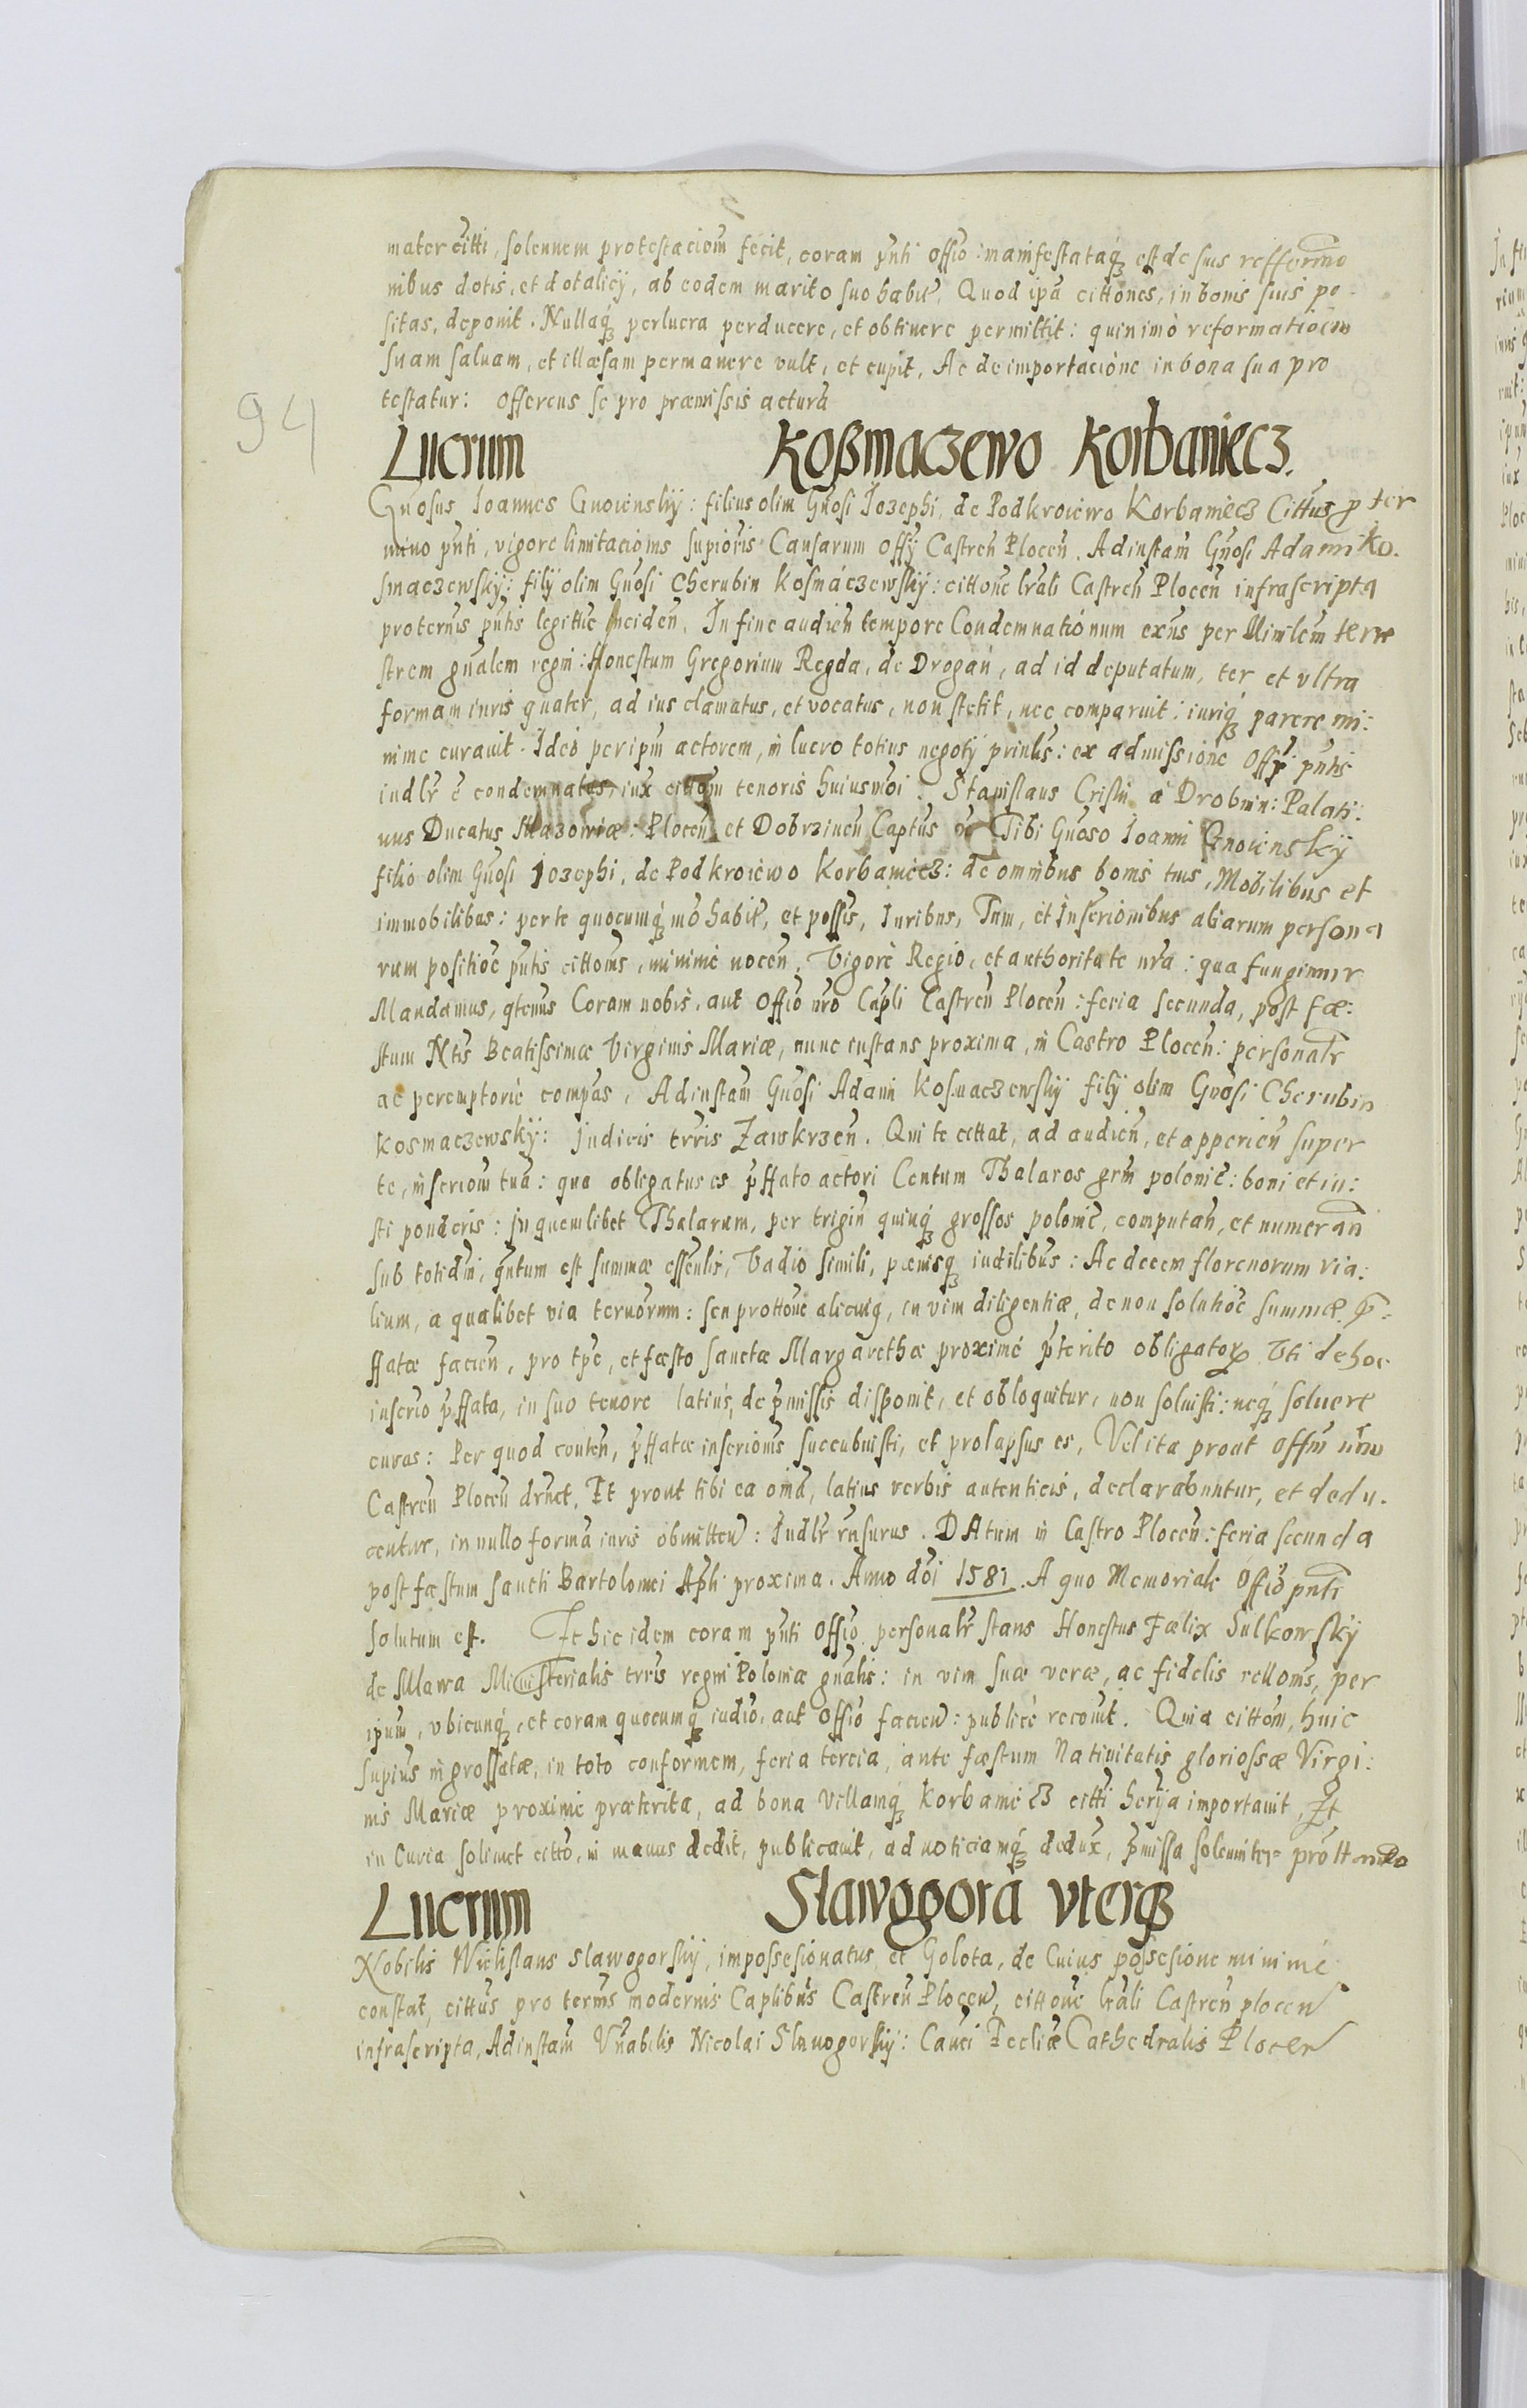 mater citti, solennem protestaciom fecit, coram pnti offio: manifestataq est de suis refformo
nibus dotis, et dotalicÿ, ab eodem marito suo habit, Quod ipa cittones, in bonis suis po
sitas, deponit. Nullaq perlucra perducere, et obtinere permittit: quinimo reformatioem
suam saluam, et illæsam permanere vult, et cupit. Ac de importacione in bona sua pro
testatur: offerens se pro præmissis actura
94
Lucrum Koßmaczewo Korbaniecz.
Gnosus Ioannes Gnoienskÿ: filius olim Gnosi Iozephi, de Podkroiewo Korbaniecz Cittus p ter
mino pnti, vigore limitacionis supioris Causarum offÿ Castren Plocen. Ad instam Gnosi Adami Ko.
smaczewskÿ: filÿ olim Gnosi Cherubin Kosmaczewskÿ: cittone lrali Castren Plocen infrascripta
pro ternis pntis legittie inciden. In fine audien tempore Condemnationum exns per Minlem terre
strem gnalem regni: Honestum Gregorium Regda, de Drogan, ad id deputatum, ter et vltra
formam iuris quater, ad ius clamatus, et vocatus, non stetit, nec comparuit: iuriq parere mi:
nime curauit. Ideo per ipm actorem, in lucro totius negotÿ prinlis: ex admissione offÿ pntis
iudlr e condemnatus, iux cittom tenoris huiusmoi. Stanislaus Crisni a Drobnin: Palati:
nus Ducatus Mazowiæ: Plocen et Dobrzinen Captus Tibi Gnoso Ioanni Gnoienskÿ
filio olim Gnosi Iozephi, de Podkroiewo Korbaniecz: de omnibus bonis tuis, Mobilibus et
immobilibus: per te quocumq mo habit, et possis, Iuribus, Tum, et Inscrionibus aliarum persona
rum positioe pntis cittonis, minime nocen. Vigore Regio, et authoritate nra: qua fungimur
Mandamus, qtenus Coram nobis, aut offio nro Capli Castren Plocen: feria secunda, post fæ:
stum Ntis Beatissimæ Virginis Mariæ, nunc instans proxima, in Castro Plocen: personalr
ac peremptorie compas, Ad instam Gnosi Adami Kosmaczewskÿ filÿ olim Gnosi Cherubin
Kosmaczewskÿ: Iudicis trris Zawkrzen. Qui te cittat, ad audien, et apperien super
te, inscriom tua: qua obligatus es pffato actori Centum Thalaros grm polonic: boni et iu:
sti ponderis: in quemlibet Thalarum, per trigin quinq grossos polonic, computan, et numeran
sub totidm, qntum est summæ essenlis, Vadio simili, pænisq iudilibus: Ac decem florenorum via:
lium, a qualibet via ternorum: seu prottone alicuiq, in vim diligentiæ, de non solutioe summæ p-
ffatæ facien, pro tpe, et fæsto sanctæ Margarethæ proxime pterito obligator Vti de hoc
inscrio pffata, in suo tenore latius, de pmissis disponit, et obloquitur, non soluisti: neq soluere
curas: Per quod conten, pffatæ inscrionis succubuisti, et prolapsus es, Vel ita prout offm nrm
Castren Plocen drnct. Et prout tibi ea oina, latius verbis autenticis, declarabuntur, et dedu.
centur, in nullo forma iuris obmitten: Iudlr rnsurus. DAtum in Castro Plocen: feria secunda
post fæstum sancti Bartolomei Apli proxima. Anno doi 1581. A quo Memoriale offio pnti
solutum est. Et hic idem coram pnti offio personalr stans Honestus Fælix Sulkowskÿ
de Mlawa Ministerialis trris regni Poloniæ gnalis: in vim suæ veræ, ac fidelis rellonis, per
ipum, vbicunq, et coram quocumq iudio, aut offio facien: publice recouit. Quia cittom, huic
supius ingrossatæ, in toto conformem, feria tercia, ante fæstum Natiuitatis gloriossæ Virgi:
nis Mariæ proxime præterita, ad bona Villamq Korbaniecz citti heri͂a importauit, Et
in Curia soliuct citto, in manus dedit, publicauit, ad noticiamq dedux, pmissa solemniter prott ando
Lucrum Slawogora vterq
Nobilis Wiclislaus Slawogorskÿ, impossesionatus, et Golota, de Cuius possesione minime
constat, cittus pro terms modernis Caplibus Castren Plocen, cittone lrali Castren plocen
infrascripta, Ad instam Vnabilis Nicolai Slawogorskÿ: Canci Ecclie Cathedralis Plocen